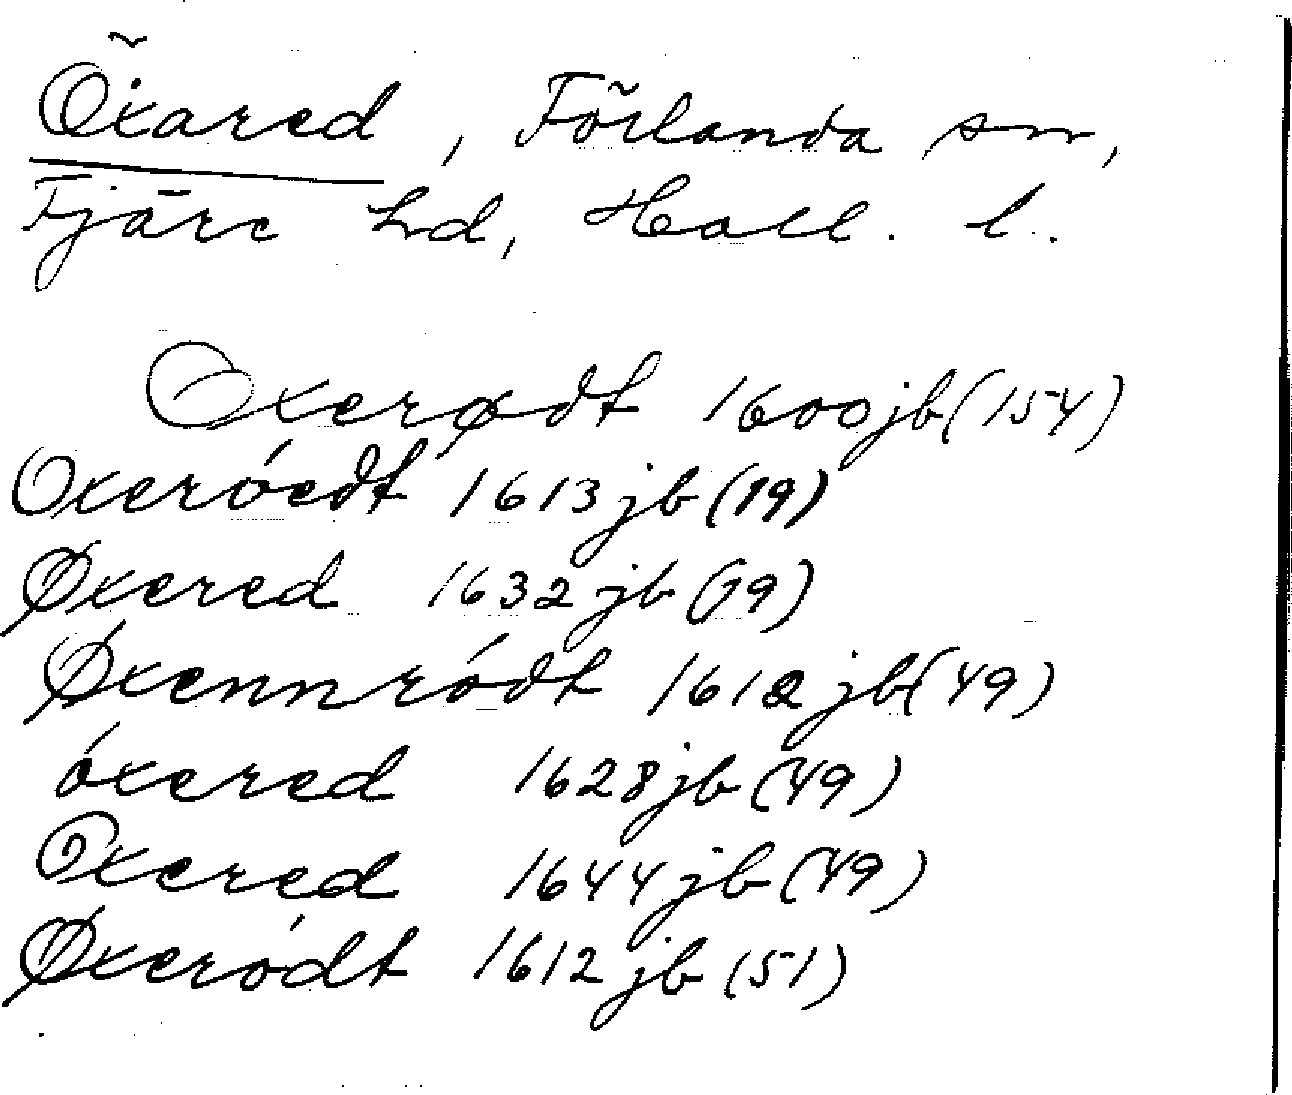 Öxared, Förlanda sn,
Fjäre hd, Hall. l.
Oxerødt 1600 jb (154)
Oxeróedt 1613 jb (19)
Øxered 1632 jb (19)
Øxennródt 1612 jb (49)
óxered 1628 jb (49)
Oxered 1644 jb (49)
Øxeródt 1612 jb (51)